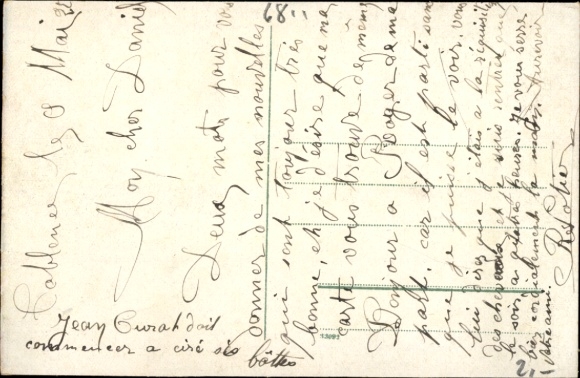 Coblence le 8 Mai
Mon cher Daniel
Deux mots pour vous
donner de mes nouvelles
qui sont toujour très
bonne, et je désire que ma
carte vous trouve de même
Bonjour a Roger de ma
part, car il est parti sans
que je puisse le voir. vous
lui direz que j'étais a la réquisition
des chevaux et je suis rentré que
le soir, a quatre heures. Je vous serre
bien cordialement la main. Aurevoir
Votre ami.
Jean Curah doit
commencer a ciré ses
bottes
68
21